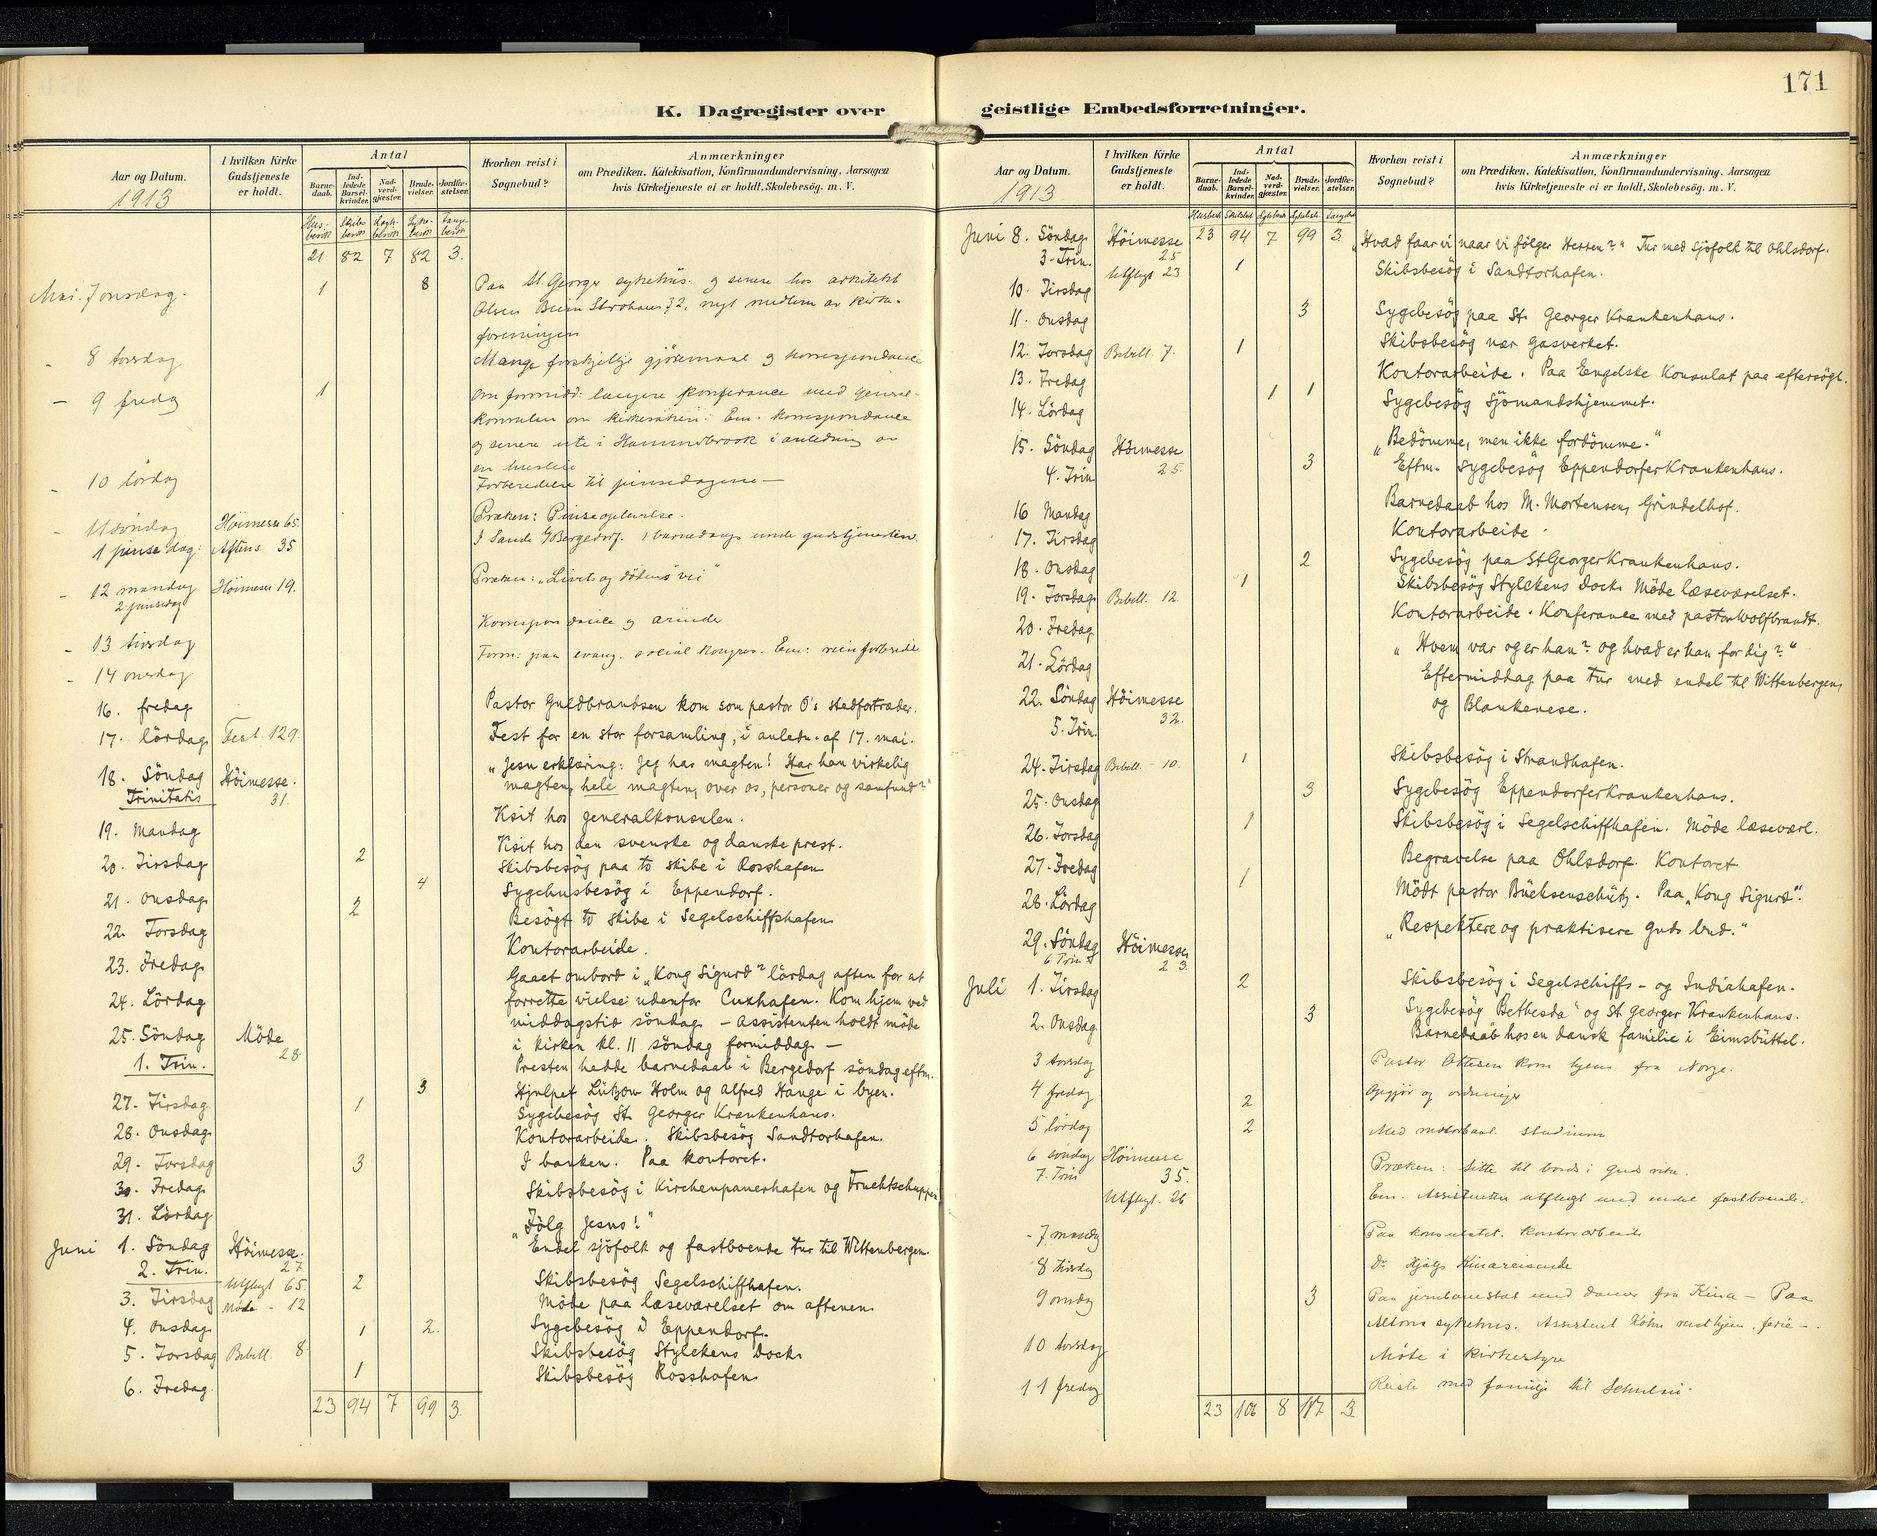 171
K. Dagregister over
Aar og Datum.
1913
I hvilken Kirke
Gudstjeneste
er holdt.
Antal
Barne-
daab.
Ind-
ledede
Barsel-
kvinder.
Nad-
verd-
gjæster.
Brude-
vielser.
Jordfæ-
stelser.
Hvorhen reist i
Sognebud?
Anmærkninger
om Prædiken, Katekisation, Konfirmandundervisning, Aarsagen
hvis Kirketjeneste ei er holdt, Skolebesøg, m. V.
Hus-
besök Skibs
besök Logi-
besök Syke-
besök Fange
besök
21 82 7 82 3.
Mai. 7 onsdag. 1 8 Paa St. Georger sykehus. og senere hos arkitekt
Olsen Beim Strohaus 72, nyt medlem av kirke-
foreningen
- 8 torsdag Mange forskjellige gjöremaal og korrespondance
- 9 fredag 1 Om formidd: længere konferance med general-
konsulen om kirkesaken: Em. korrespondance
og senere ute i Hammerbrook i anledning av
en
- 10 lördag Forberedelse til pinsedagene -
- 11 söndag Höimesse 65. Præken: Pinseoplevelse.
1 pinsedag: Aftens. 35 I Sande b/Bergedorf. 1 barnedaap under gudstjenesten
- 12 mandag Höimesse 19. Præken: "Livets og dödens vei"
2 pinsedag
- 13 tirsdag Korrespondance og ærinder
- 14 onsdag Form: paa evang. social kongres. Em:
16. fredag Pastor Guldbrandsen kom som pastor O's stedfortræder.
17. lördag Fest. 129. Fest for en stor forsamling, i anledn. af 17. mai.
18. Söndag Höimesse. "Jesu erklæring: Jeg har magten! Har han virkelig
Trinitatis 31. magten, hele magten, over os, personer og samfund?"
19. Mandag Visit hos generalkonsulen.
20. Tirsdag 2 Visit hos den svenske og danske prest.
Skibsbesög paa to skibe i Rosshafen
21. Onsdag 4 Sygehusbesög i Eppendorf.
22. Torsdag 2 Besögt to skibe i Segelschiffshafen
23. Fredag Kontorarbeide.
24. Lördag Gaaet ombord i "Kong Sigurd" lördag aften for at
forrette vielse udenfor Cuxhafen. Kom hjem ved
25. Söndag Möde middagstid söndag - Assistenten holdt möde
1. Trin. 28. i kirken kl. 11 söndag formiddag -
Presten hadde barnedaab i Bergedorf söndag eftm.
27. Tirsdag 3 Hjulpet Lützow Holm og Alfred Hauge i byen.
28. Onsdag 1 Sygebesög St. Georger Krankenhaus.
29. Torsdag Kontorarbeide. Skibsbesög Sandtorhafen.
30. Fredag 3 I banken. Paa kontoret.
31. Lördag Skibsbesög i Kirchenpauerhafen og Fruchtschuppen
Juni 1. Söndag Höimesse. "Fölg Jesus!"
2. Trin. 27 Endel sjöfolk og fastboende tur til Wittenbergen.
Utflugt 65.
3. Tirsdag Möde - 12 2 Skibsbesög Segelschiffhafen.
Möde paa læseværelset om aftenen
4. Onsdag 2. Sygebesög i Eppendorf.
5. Torsdag Bibell. 8. 1 Skibsbesög Stylckens dock
6. Fredag. 1 Skibsbesög Rosshafen
23 94 7 99 3.
geistlige Embedsforretninger.
Aar og Datum.
1913.
I hvilken Kirke
Gudstjeneste
er holdt.
Antal
Barne-
daab.
Ind-
ledede
Barsel-
kvinder.
Nad-
verd-
gjæster.
Brude-
vielser.
Jordfæ-
stelser.
Hvorhen reist i
Sognebud?
Anmærkninger
om Prædiken, Katekisation, Konfirmandundervisning, Aarsagen
hvis Kirketjeneste ei er holdt, Skolebesøg, m. V.
Juni 8. Söndag Höimesse 23 94 7 99 3 "Hvad faar vi naar vi fölger Herren?" Tur med sjöfolk til Ohlsdorf.
3. Trin. 25
Utflugt 23
10. Tirsdag 1 Skibsbesög i Sandtorhafen.
11. Onsdag 3 Sygebesög paa St. Georger Krankenhaus.
12. Torsdag Bibell. 7. 1 Skibsbesög nær gasverket.
13. Fredag Kontorarbeide. Paa Engelske Konsulat paa eftersögt.
14. Lördag 1 1 Sygebesög Sjömandshjemmet.
15. Söndag Höimesse "Bedömme, men ikke fordömme."
4. Trin 25. 3 Eftm. Sygebesög Eppendorfer Krankenhaus.
16 Mandag Barnedaab hos M. Mortensen, Grindelhof.
17. Tirsdag Kontorarbeide.
18. Onsdag 2 Sygebesög paa St Georger Krankenhaus.
19. Torsdag Bibell. 12. 1 Skibsbesög Stylckens dock. Möde læseværelset.
20. Fredag Kontorarbeide. Konferance med pastor Wolfbrandt.
21. Lördag
22. Söndag Höimesse "Hvem var og er han? og hvad er han for dig?"
5. Trin. 32. Eftermiddag paa tur med endel til Wittenbergen,
og Blankenese.
24. Tirsdag Bibell. - 10. 1 Skibsbesög i Strandhafen.
25. Onsdag 3 Sygebesög Eppendorfer Krankenhaus.
26. Torsdag 1 Skibsbesög i Segelschiffhafen. Möde læseværl.
27. Fredag Begravelse paa Ohlsdorf. Kontoret
28. Lördag 1 Mödt pastor Bücksenschütz. Paa "Kong Sigurd".
29. Söndag Höimesse "Respektere og praktisere Guds bud."
6 Trin 23.
Juli 1. Tirsdag 2 Skibsbesög i Segelschiffs- og Indiahafen.
2. Onsdag 3 Sygebesög "Bethesda" og St. Georger Krankenhaus.
Barnedaab hos en dansk familie i Eimsbüttel.
3 torsdag Pastor Ottesen kom hjem fra Norge.
4 fredag 2 Opgjör og ordninger
5 lördag 2 Med motorbaat. studium
6 söndag Höimesse Præken: sitte til bords i Guds rike.
7. Trin 35.
Utflugt. 26 Em. Assistenten utflugt med endel fastboende.
- 7 mandag Paa konsulatet. kontorarbeide
8 tirsdag Dr Kinareisende
9 onsdag 3 Paa jernbanestat med damer fra Kina - Paa
Altona sykehus. Assistent Holm reist hjem, ferie -.
10 torsdag Möte i kirkestyre
11 fredag Reiste med familje til
23 106 8 117 3